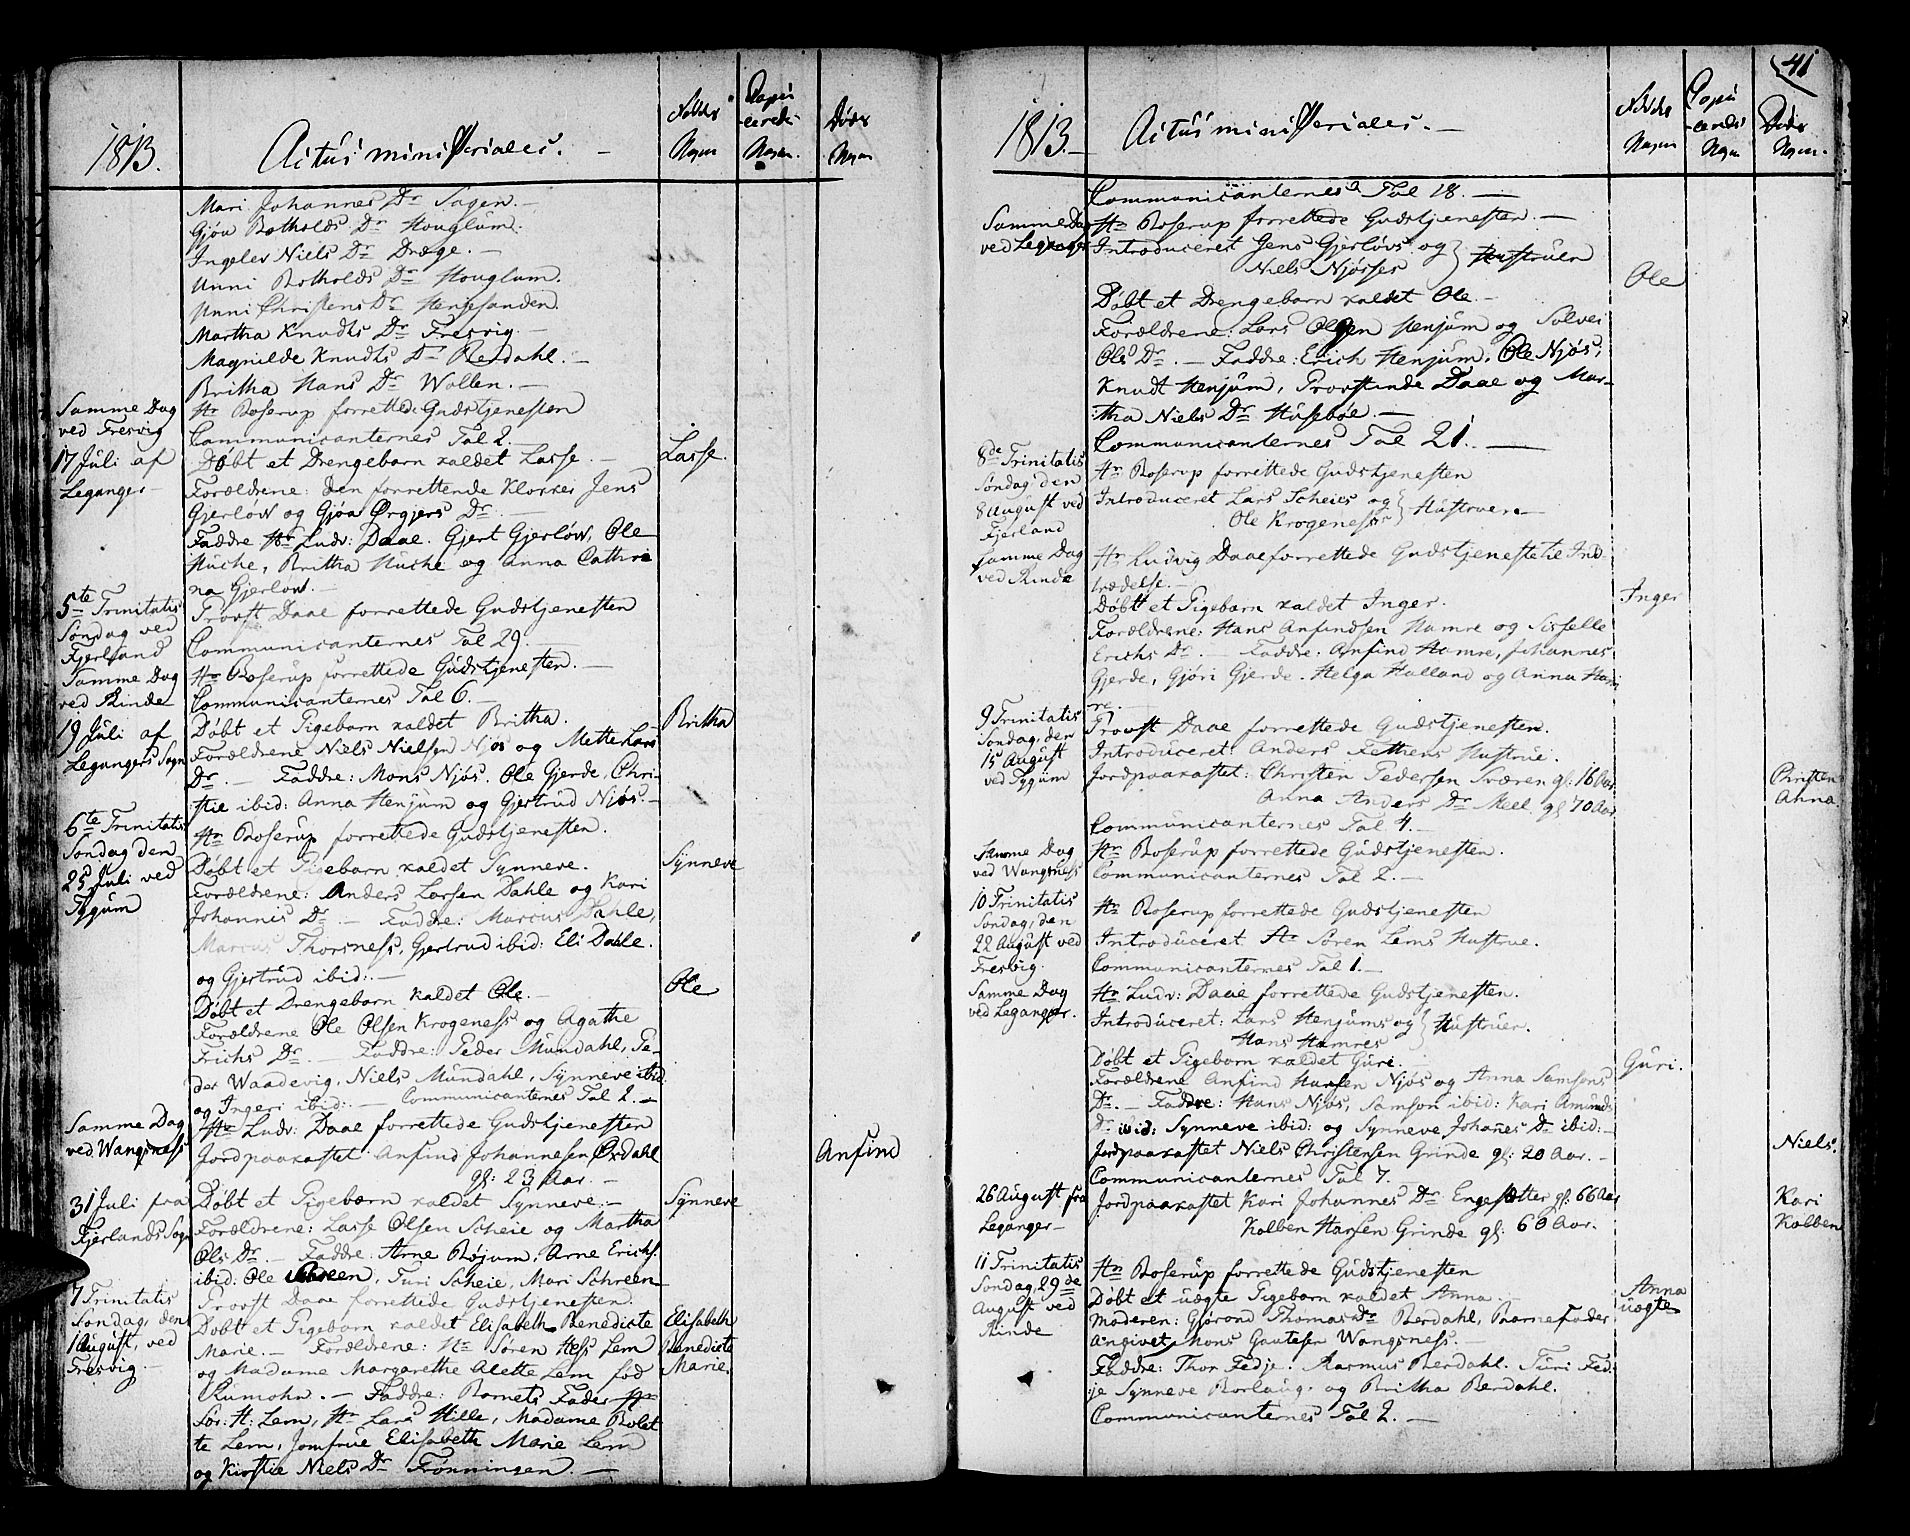 1813.
Actus ministeriales.
Døbtes Nagen
Copu-lerede Nagen.
Dødes Nagen
Mari Johannes Dr Sagen.
Gjøa Botholds Dr Houglum.
Ingelev Niels Dr Dræge.
Unni Botholds Dr Houglum.
Unni Christens Dr Hengesanden.
Martha Knudts Dr Fresvig.
Magnilde Knudts Dr Berdahl.
Britha Hans Dr Wollen.
Samme Dag
ved Fresvig
Hr Boserup forrettede Gudstjenesten
Communicanternes Tal 2.
17 Juli af
Leganger
Døbt et Drengebarn kaldet Lasse.
Lasse.
Forældrene: Den forrettende Klokker Jens
Gjerløw og Gjøa Ørgjers Dr
Faddre Hr Ludv: Daae. Gjert Gjerløw, Ole
Huche, Britha Huche og Anna Cathri
na Gjerløw.
5te Trinitatis
Søndag ved
Fjerland
Provst Daae forrettede Gudstjenesten
Communicanternes Tal 29.
Samme Dag
ved Rinde
Hr Boserup forrettede Gudstjenesten.
Communicanternes Tal 6.
19 Juli af
Legangers Sogn
Døbt et Pigebarn kaldet Britha.
Britha
Forældrene Niels Nielsen Njøs og Mette Lars
Dr. Faddre: Mons Njøs. Ole Gjerde, Chri-
stie ibid: Anna Henjum og Gjertrud Njøs.
6te Trinitatis
Søndag den
25 Juli ved
Tygum
Hr Boserup forrettede Gudstjenesten.
Døbt et Pigebarn kaldet Synneve.
Synneve
Forældrene: Anders Larsen Dahle og Kari
Johannis Dr. Faddre: Marcus Dahle,
Marcus Thorsness, Gjertrud ibid: Eli Dahle.
og Gjertrud ibid:
Døbt et Drengebarn kaldet Ole.
Ole
Forældrene Ole Olsen Krogeness og Agathe
Erichs Dr. Faddre: Peder Mundahl, Pe-
der Waadevig, Niels Mundahl, Synneve ibid.
og Ingeri ibid: Communicanternes Tal 2.
Samme Dag
ved Wangsness
Hr Ludv: Daae forrettede Gudstjenesten
Jordpaakastet Anfind Johannesen Oxdahl
gl: 23 Aar.
Anfind
31 Juli fra
Fjerlands Sogn
Døbt et Pigebarn kaldet Synneve.
Synneve
Forældrene: Lasse Olsen Scheie og Martha
Ols Dr. Faddre: Arne Bøjum, Arne Erichs.
ibid: Ole Schreen, Turi Scheie, Mari Schreen
7 Trinitatis
Søndag, den
1 August, ved
Fresvig.
Provst Daae forrettede Gudstjenesten.
Døbt et Pigebarn kaldet Elisabeth Benedicte
Elisabeth
Benedicte
Marie.
Marie. Forældrene: Hr Søren Hess Lem
og Madame Margarethe Alette Lem fød
Rumohr. Faddre: Barnets Fader Hr
Sør: H: Lem, Hr Lars Hille, Madame Bolet
te Lem, Jomfrue Elisabeth Marie Lem
og Kirstie Niels Dr Frønningen.
41
1813.
Actus ministeriales.
Døbtes Nagen
Copu-lerede Nagen
Dødes Nagen.
Communicanternes Tal 18.
Samme Dag
ved Leganger
Hr Boserup forrettede Gudstjenesten.
Introduceret Jens Gjerløvs og
Niels Njøsses
Hustruer
Døbt et Drengebarn kaldet Ole.
Ole
Forældrene: Lars Olsen Henjum og Solvei
Ols Dr. Faddre: Erich Henjum, Ole Njøs,
Knudt Henjum, Provstinde Daae og Mar-
tha Niels Dr Husebøe.
Communicanternes Tal 21.
8de Trinitatis
Søndag den
8 August ved
Fjerland
Hr Boserup forrettede Gudstjenesten
Introduceret Lars Scheies og
Ole Krogeness
Hustruer
Samme Dag
ved Rinde
Hr Ludvig Daae forrettede Gudstjenesten Ind-
trædelse.
Døbt et Pigebarn kaldet Inger.
Inger
Forældrene: Hans Anfindsen Hamre og Sisselle
Erichs Dr. Faddre: Anfind Hamre, Johannes
Gjerde, Gjøri Gjerde. Helga Halland og Anna Ham
re.
9 Trinitatis
Søndag, den
15 August
ved Tygum
Provst Daae forrettede Gudstjenesten.
Introduceret: Anders Fethens Hustrue.
Jordpaakastet: Christen Pedersen Sværen gl: 16 Aar.
Christen
Anna Anders Dr Meel gl 70 Aar
Anna
Communicanternes Tal 4.
Samme Dag
ved Wangsness
Hr Boserup forrettede Gudstjenesten.
Communicanternes Tal 2.
10 Trinitatis
Søndag, den
22 August ved
Fresvig.
Hr Boserup forrettede Gudstjenesten
Introduceret Hr Søren Lems Hustrue.
Communicanternes Tal 1.
Samme Dag
ved Leganger.
Hr Ludv: Daae forrettede Gudstjenesten.
Introduceret: Lars Henjums og
Hans Hamres
Hustruer.
Døbt et Pigebarn kaldet Guri.
Guri.
Forældrene Anfind Hansen Njøs og Anna Samsons
Dr. Faddre: Hans Njøs, Samson ibid: Kari Amunds
Dr ibid: Synneve ibid: og Synneve Johanes Dr ibid:
Jordpaakastet Niels Christensen Grinde gl: 20 Aar.
Niels.
Communicanternes Tal 7.
26 August fra
Leganger
Jordpaakastet Kari Johannes Dr Engesætter gl: 66 Aar
Kari
Kolben Hansen Grinde gl: 60 Aar.
Kolben
11 Trinitatis
Søndag, 29de
August ved
Rinde
Hr Boserup forrettede Gudstjenesten
Døbt et uægte Pigebarn kaldet Anna.
Anna
uægte
Moderen: Gjørond Thomas Dr Berdahl, Barnefader
Angivet Mons Gautesen Wangsness.
Faddre: Thor Fedje. Rasmus Berdahl. Turi Fed-
je Synneve Borlaug. og Britha Berdahl.
Communicanternes Tal 2.